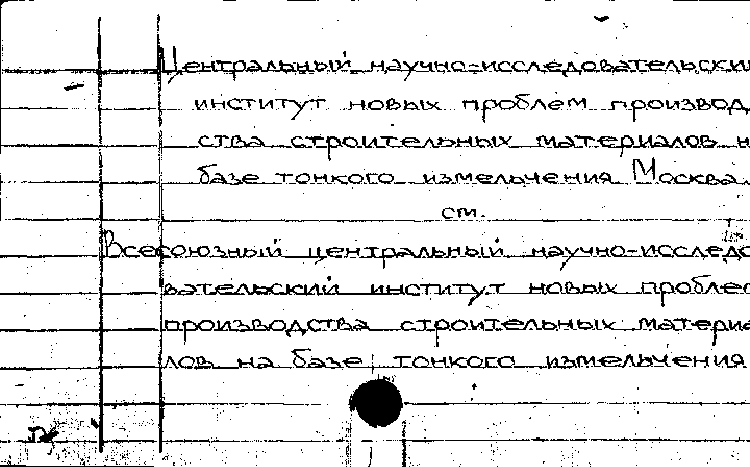 Центральный научно-исследовательский
институт новых проблем производ
ства строительных материалов н
базе тонкого измельчения Москва.
см.
Всесоюзный центральный научно-исследо
вательский институт новых проблем
производства строительных материа
лов на базе тонкого измельчения